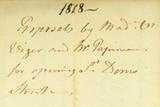 1818 —
Proposals by Mad. de
Viger and Mr Papineau
for opening St. Denis
Street —